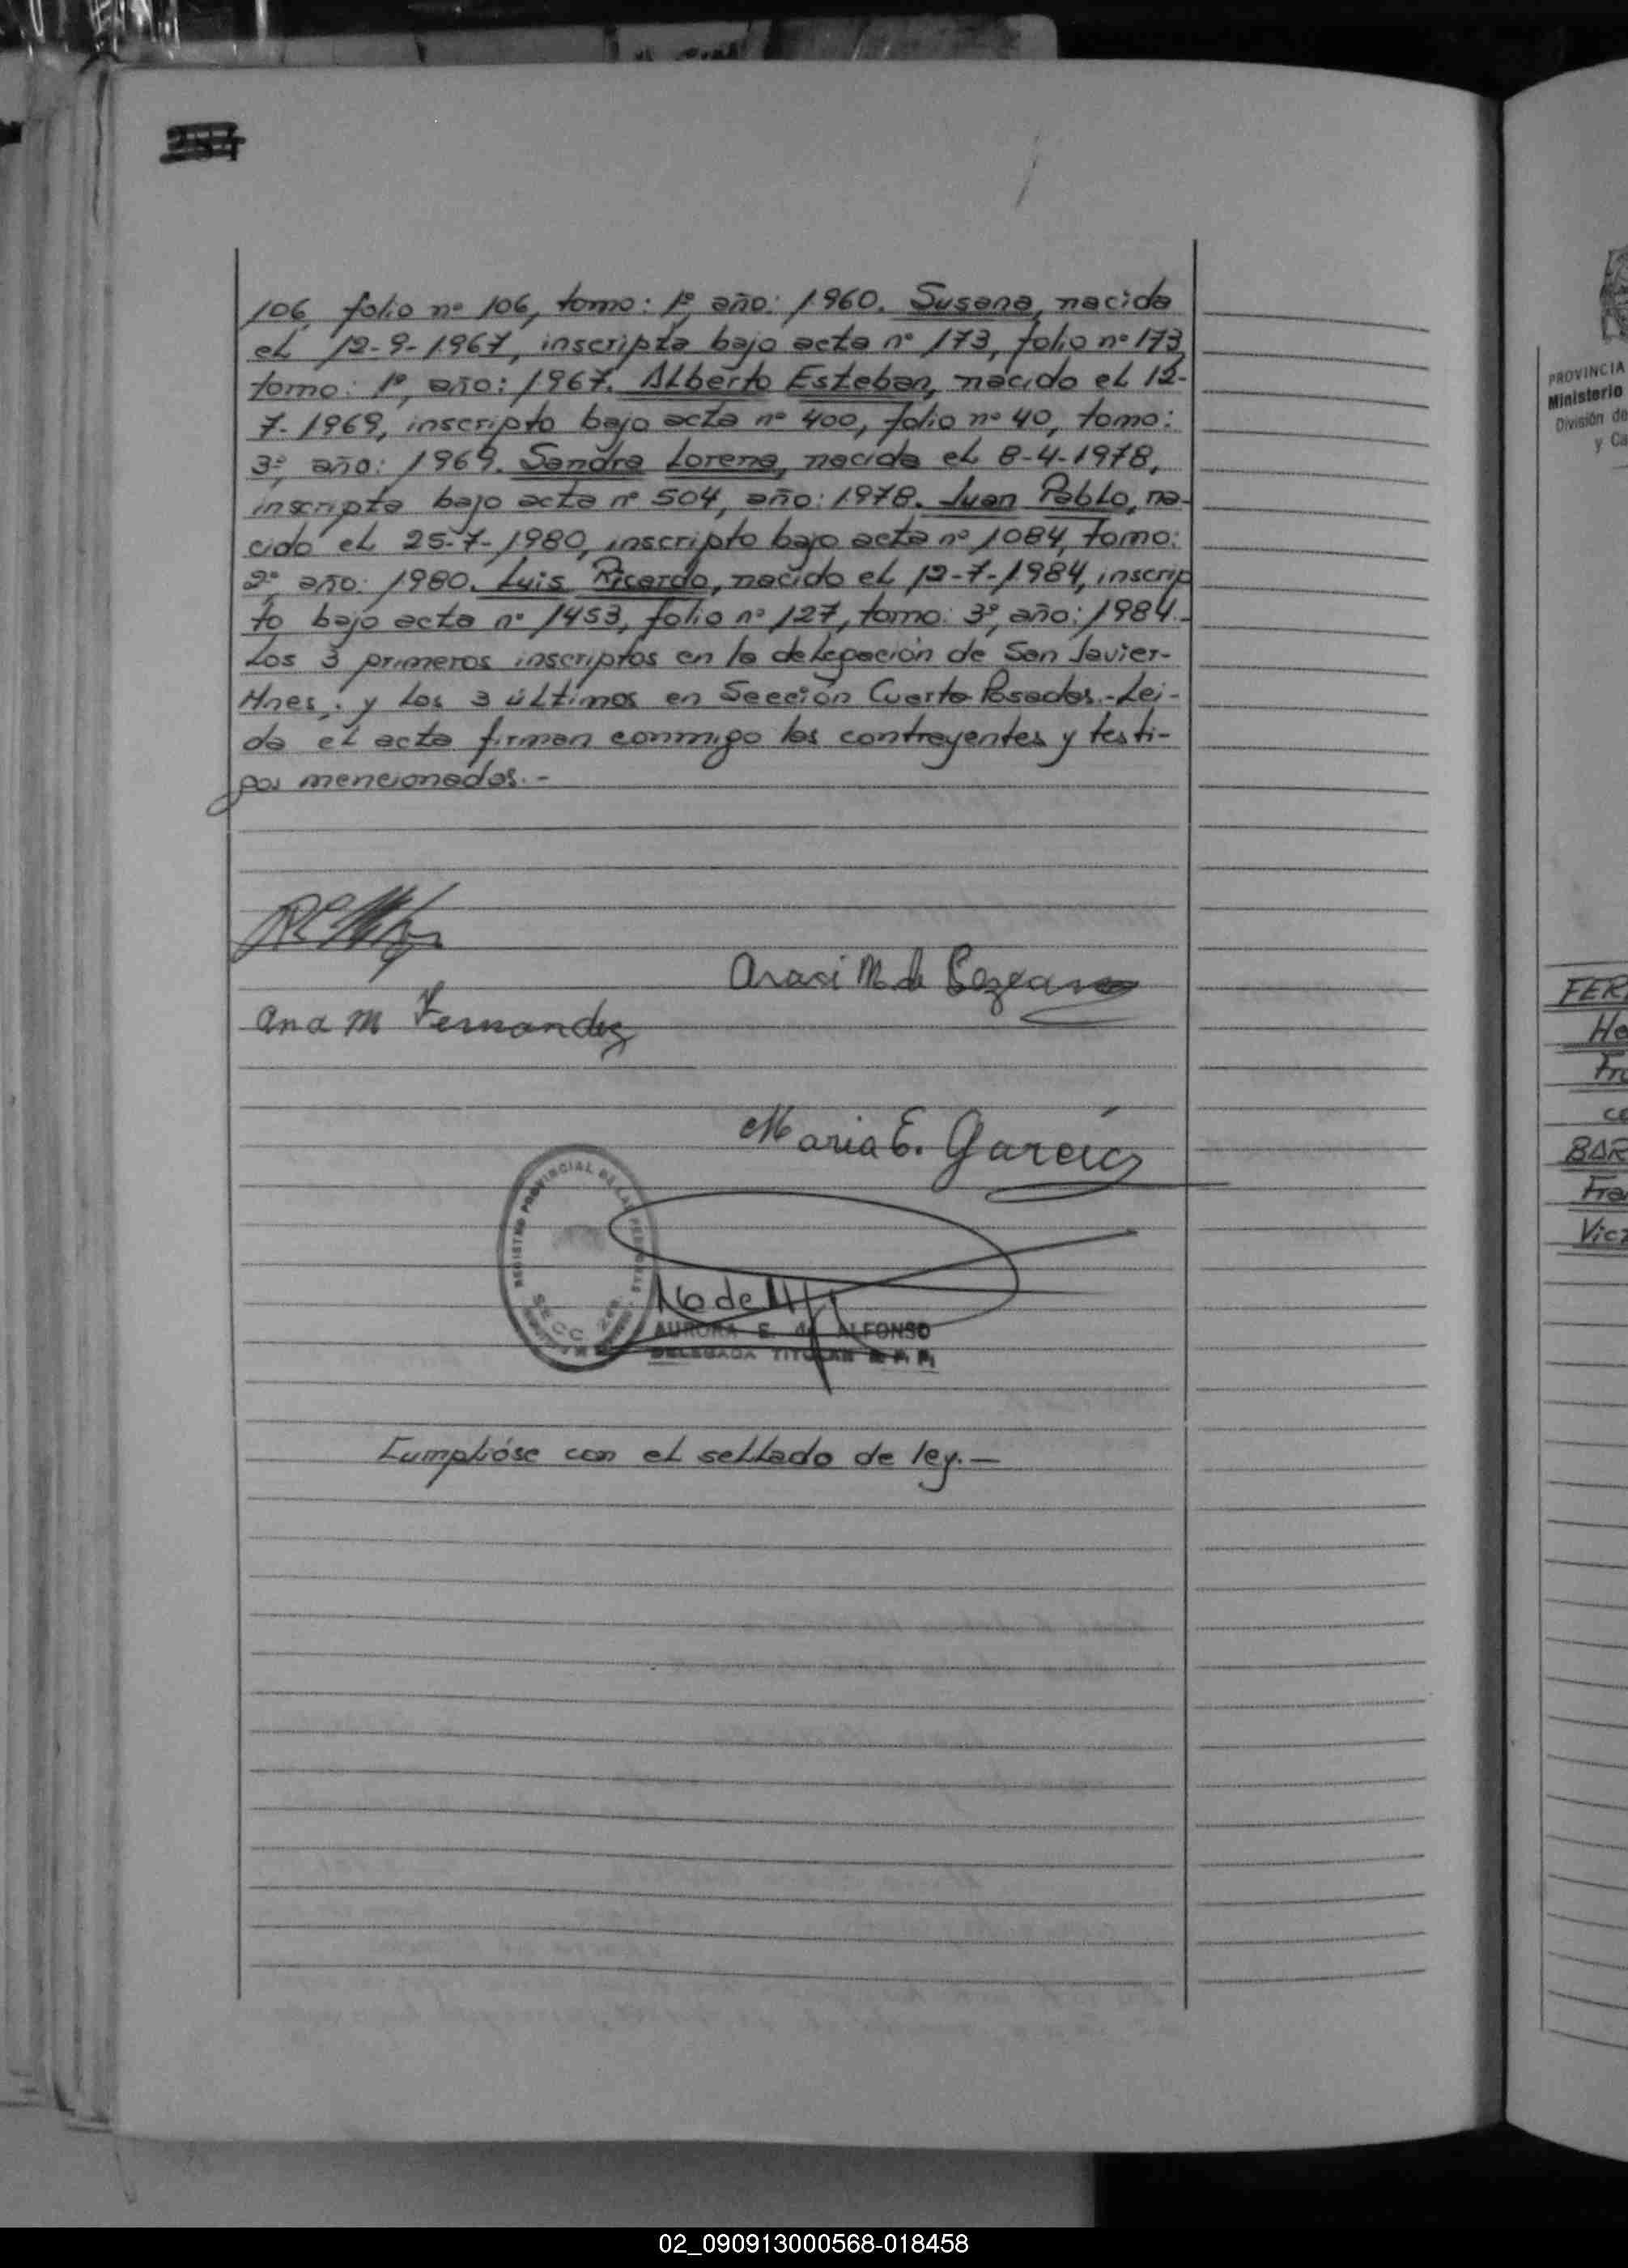 284
106, folio nº 106, tomo: 1º, año: 1960. Susana, nacida
el 12-9-1967, inscripta bajo acta nº 173, folio nº 173,
tomo: 1º, año: 1967. Alberto Esteban, nacido el 12-
7-1969, inscripto bajo acta nº 400, folio nº 40, tomo:
3º, año: 1969. Sandra Lorena, nacida el 8-4-1978,
inscripta bajo acta nº 504, año: 1978. Juan Pablo, na-
cido el 25-7-1980, inscripto bajo acta nº 1084, tomo:
2º, año: 1980. Luis Ricardo, nacido el 12-7-1984, inscrip
to bajo acta nº 1453, folio nº 127, tomo: 3º, año: 1984.-
Los 3 primeros inscriptos en la delegación de San Javier-
Mnes,. y los 3 últimos en Sección Cuarta-Posadas.-Lei-
da el acta firman conmigo los contrayentes y testi-
gos mencionados.-
Arasi M. de
Ana M Fernandez
Maria E. García
REGISTRO PROVINCIAL DE LAS PERSONAS
SECC. 2da.
AURORA E. de ALFONSO
DELEGADA TITULAR R. P. P.
Cumplióse con el sellado de ley.-
PROVINCIA
Ministerio
División de
y Ca
FER
He
Fra
ce
BAR
Fra
Vic
02_090913000568-018458